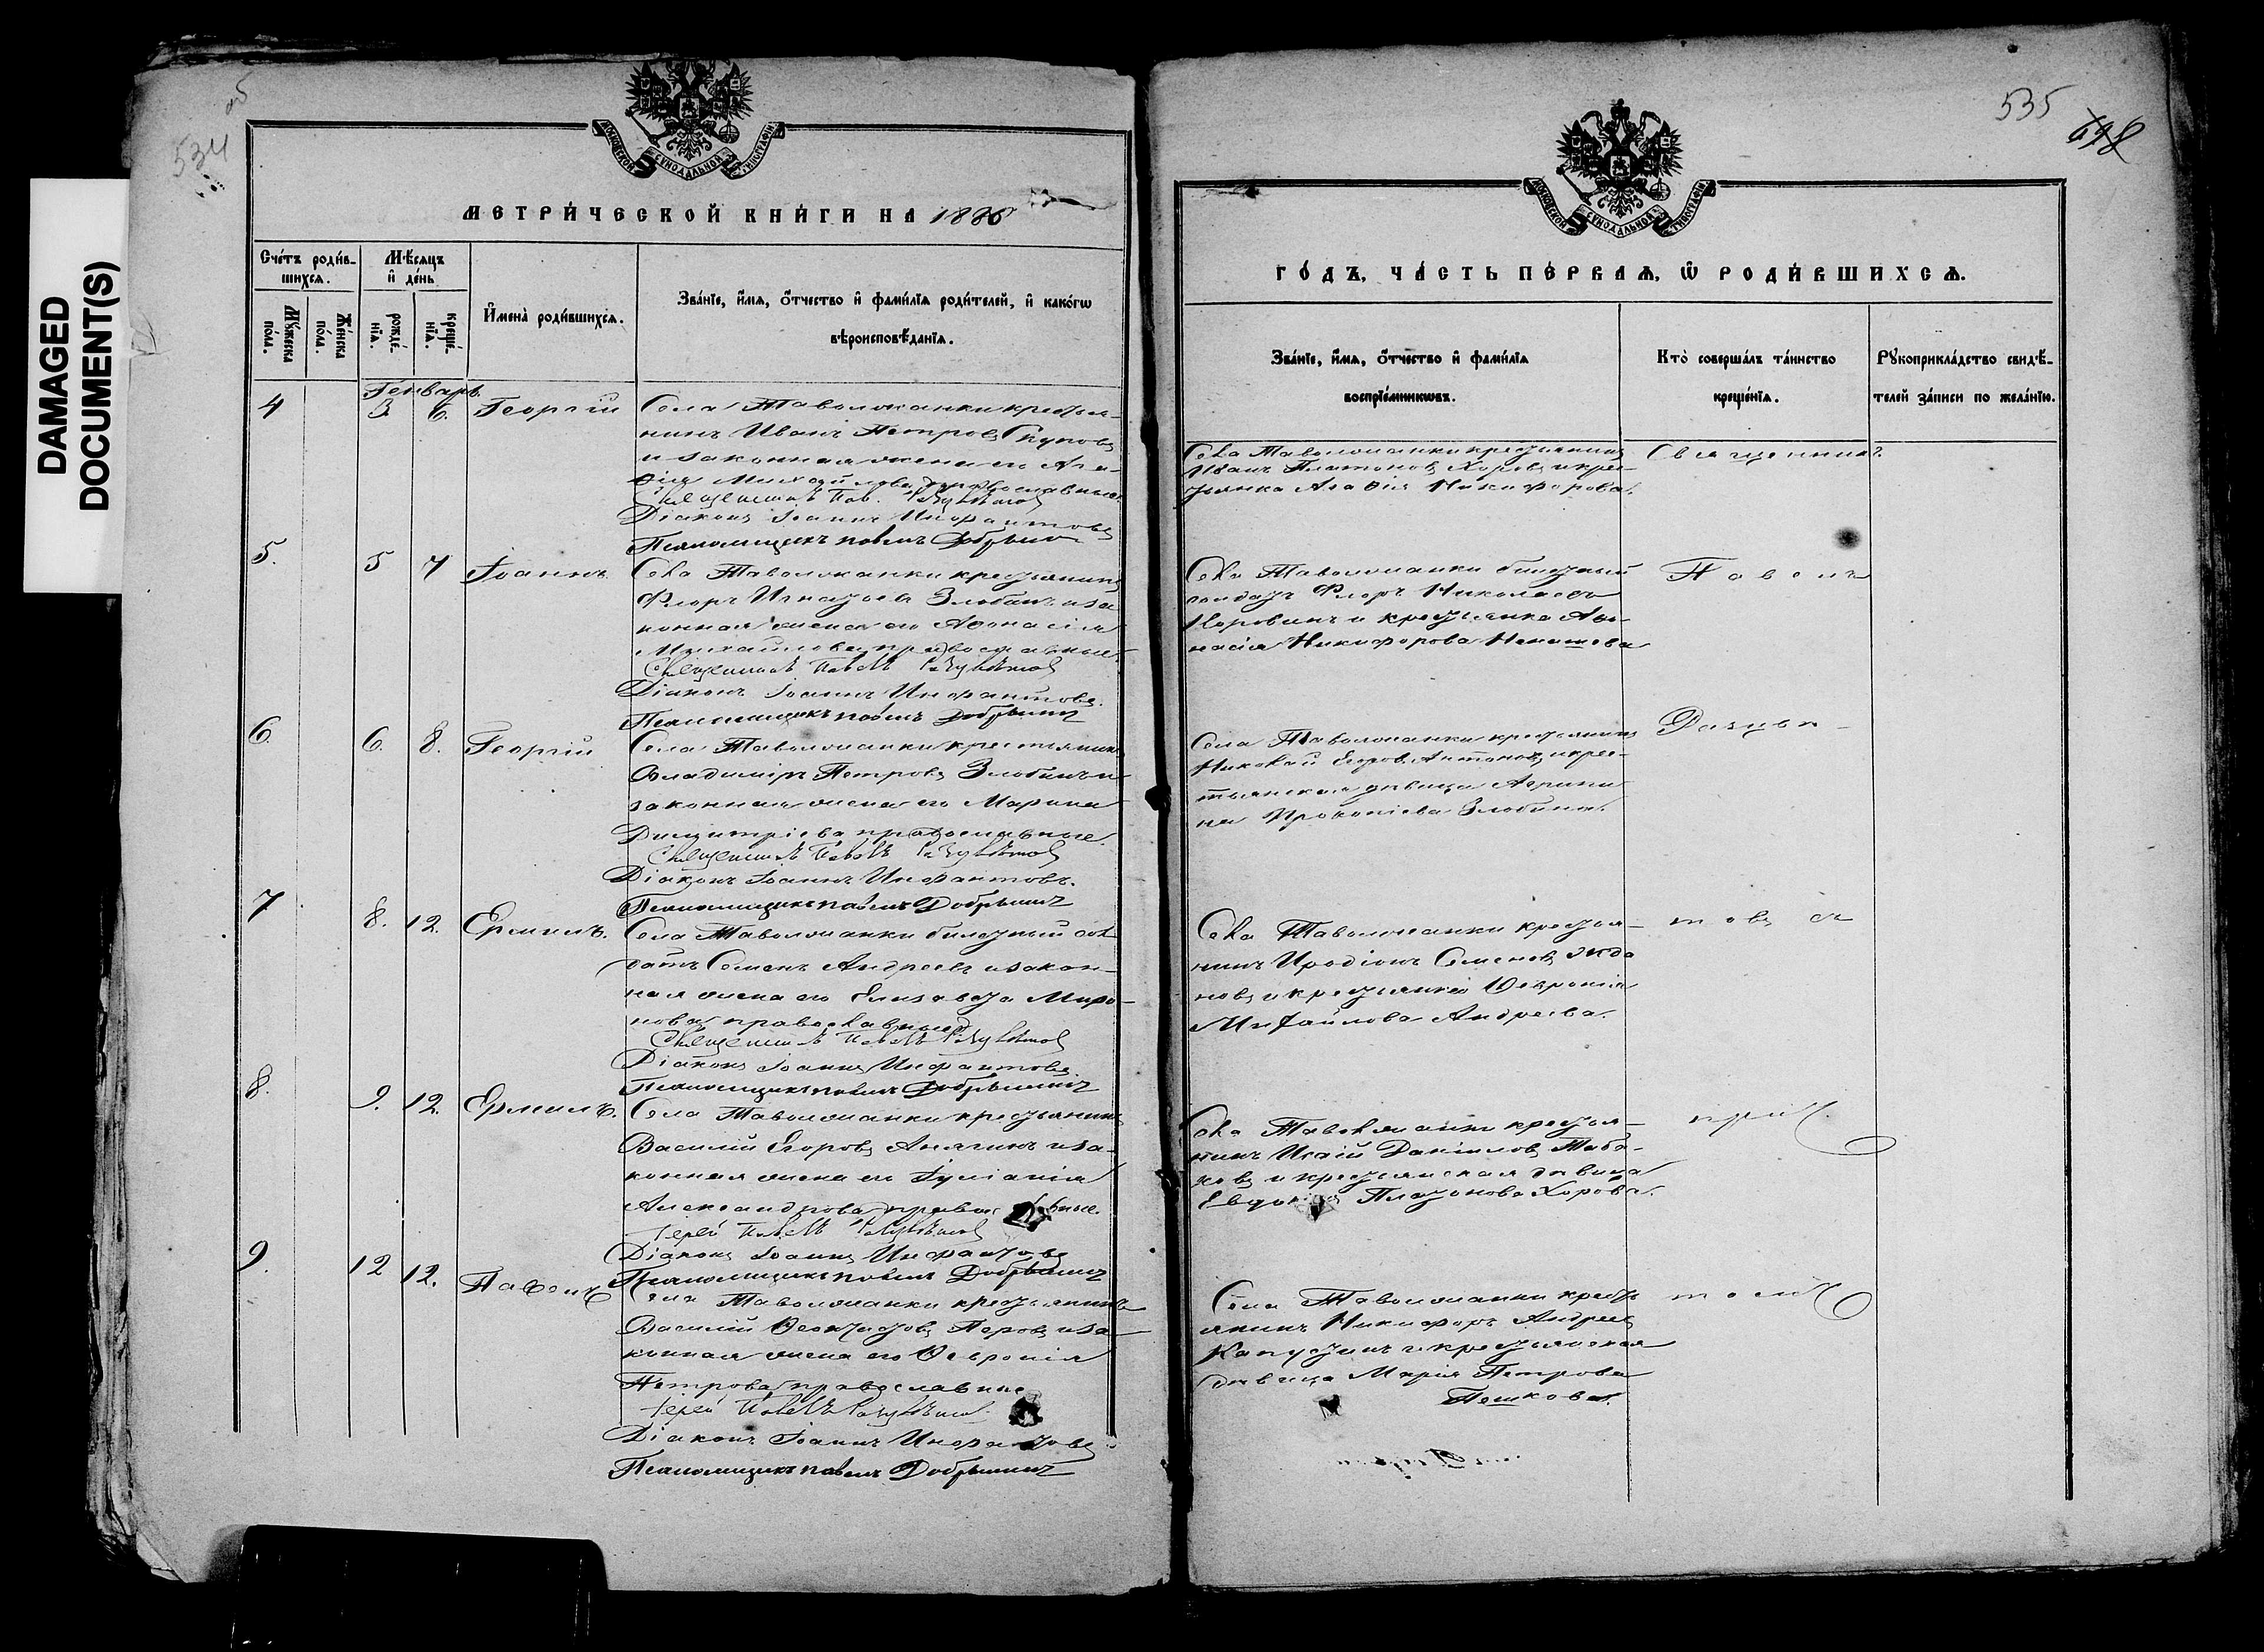 DAMAGED
DOCUMENT(S)
534
об
МОСКОВСКОЙ СѴНОДАЛЬНОЙ ТИПОГРАФІИ
МЕТРИ́ЧЕСКОЙ КНИ́ГИ НА 1886
Сче́тъ роди́в-
шихся.
Мѣ́сяцъ
и҆ де́нь
Мꙋ́жеска
по́ла.
Же́нска
по́ла.
рожде́-
нїя.
креще́-
нїя.
И҆мена̀ роди́вшихся.
Зва́нїе, и҆́мя, ѻ҆́тчество и҆ фами́лїя роди́телей, и҆ како́гѡ
вѣроисповѣ́данїя.
Генварь
4 3 6. Георгій
Села Таволожанки крестья-
нинъ Иванъ Петровъ
и законная жена его Ага-
ѳія Михайлова православные.
Священникъ Пав. Разумовъ
Діаконъ Іоаннъ Инфантовъ
Псаломщикъ Павелъ Добрынин
5. 5 7 Іоаннъ
Села Таволожанки крестьянинъ
Флоръ Игнатьевъ Злобинъ и за
конная жена его Аѳонасія
Михайлова православные
Священникъ Павелъ
Діаконъ Іоаннъ Инфантовъ.
Псаломщикъ Павелъ Добрынинъ
6. 6. 8. Георгій
Села Таволожанки крестьянинъ
Владиміръ Петровъ Злобинъ и
законная жена его Марина
Димитріева православные.
Священникъ Павелъ
Діаконъ Іоаннъ Инфантовъ.
Псаломщикъ Павелъ Добрынинъ
7 8. 12. Ермилъ.
Села Таволожанки билетный сол-
датъ Семенъ Андреевъ и закон-
ная жена его Елизавета Миро-
нова православные
Священникъ Павелъ
Діаконъ Іоаннъ Инфантовъ.
Псаломщикъ Павелъ Добрынинъ
8. 9. 12. Ермилъ.
Села Таволожанки крестьянинъ
Василій Егоровъ и за-
конная жена его Іуліанія
Александрова православные.
Іерей Павелъ
Діаконъ Іоаннъ Инфантовъ
Псаломщикъ Павелъ Добрынинъ
9. 12 12. Павелъ
Села Таволожанки крестьянинъ
Василій Ѳеоктистовъ Перовъ и за-
конная жена его Ѳевронія
Петрова православные
Іерей Павелъ
Діаконъ Іоаннъ Инфантовъ
Псаломщикъ Павелъ Добрынинъ
535
698
МОСКОВСКОЙ СѴНОДАЛЬНОЙ ТИПОГРАФІИ
ГО́ДЪ, ЧА́СТЬ ПЕ́РВАЯ, Ѡ҆ РОДИ́ВШИХСЯ.
Зва́нїе, и҆́мя, ѻ҆́тчество и҆ фами́лїя
воспрїе́мникѡвъ.
Кто̀ соверша́лъ та́инство
креще́нїя.
Рꙋкоприкла́дство свидѣ́-
телей за́писи по жела́нїю.
Села Таволожанки крестьянинъ
Иванъ Платоновъ Хоровъ и крес-
тьянка Агаѳія Никифорова.
Священникъ
Села Таволожанки билетный
солдатъ Флоръ Николаевъ
и крестьянка Аѳо-
насія Никифорова
Павелъ
Села Таволожанки крестьянинъ
Николай Егоровъ Антоновъ и крес-
тьянская дѣвица Агрипи
на Прокопіева Злобина.
Села Таволожанки крестья-
нинъ Иродіонъ Семеновъ Жда
новъ и крестьянка Ѳевронія
Михайлова Андреева.
товъ съ
Села Таволожанки крестья-
нинъ Исаій Даниловъ Таба-
ковъ и крестьянская дѣвица
Евдокія Платонова Хорова.
прич
Села Таволожанки кресть
янинъ Никифоръ Андреевъ
Капустинъ и крестьянская
дѣвица Марія Петрова
Пешкова.
томъ